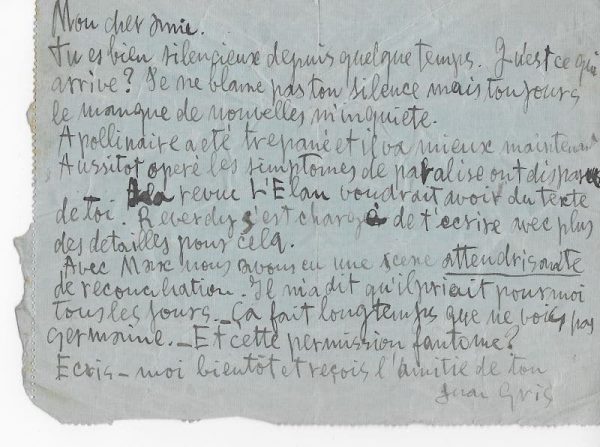 Mon cher amie.
Tu es bien silencieux depuis quelque temps. Qu'est ce qui
arrive? Je ne blame pas ton silence mais toujours
le manque de nouvelles m'inquiete.
Apollinaire a eté trepané et il va mieux maintenant
Aussitot operé les simptomes de paralise ont disparus
la revue L'Elan voudrait avoir du texte
de toi. Reverdy s'est chargé de t'ecrire avec plus
des detailles pour cela.
Avec Max nous avons eu une scene attendrisante
de reconciliation. Il m'a dit qu'il priait pour moi
tous les jours. _ Ça fait longtemps que ne vois pas
Germaine. _ Et cette permission fantome?
Ecris-moi bientôt et reçois l'amitie de ton
Juan Gris